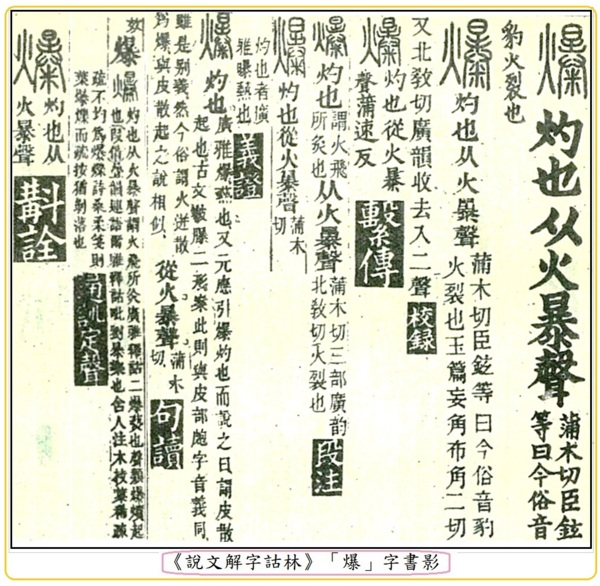 爆 灼也从火暴聲 蒲木切臣鉉
等曰今俗音
豹火裂也
爆 灼也从火暴聲 蒲木切臣鉉等曰今俗音豹
火裂也玉篇妄角布角二切
又北敎切廣韻收去入二聲 校録
爆 灼也從火暴
聲蒲速反 繫傳
爆 灼也 謂火飛
所炙也 从火暴聲 蒲木切三部廣韵
北敎切火裂也 段注
爆 灼也從火暴聲 蒲木
切
灼也者廣
雅曝爇也 義證
爆 灼也 廣雅爆爇也又元應引爆灼也而義之曰謂皮散
起也古文二形案此則與皮部皰字音義同
雖是別義然今俗謂火迸散
爲爆與皮散起之說相似 從火暴聲 蒲木
切 句讀
爆 灼也从火暴聲謂火飛所炙廣雅釋詁二爆爇也
通訓定聲
爆 灼也从
火暴聲 斠詮
《說文解字詁林》「爆」字書影